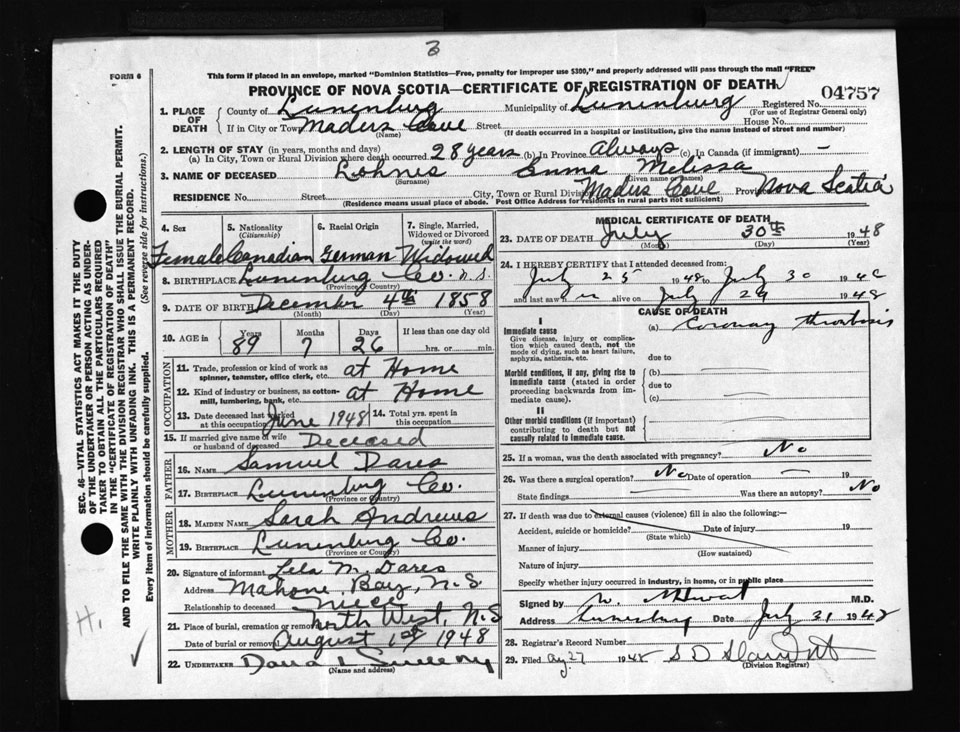 3
FORM 6
This form if placed in an envelope, marked "Dominion Statistics—Free, penalty for improper use $300," and properly addressed will pass through the mail "FREE"
PROVINCE OF NOVA SCOTIA—CERTIFICATE OF REGISTRATION OF DEATH
04757
1. PLACE OF DEATH
County of Lunenburg Municipality of Lunenburg Registered No.
(For use of Registrar General only)
If in City or Town Maders Cove Street House No.
(Name) (If death occurred in a hospital or institution, give the name instead of street and number)
2. LENGTH OF STAY (in years, months and days)
(a) In City, Town or Rural Division where death occurred 28 years (b) In Province Always (c) In Canada (if immigrant) —
3. NAME OF DECEASED Lohnes Emma Melissa
(Surname) (Given name or names)
RESIDENCE No. Street City, Town or Rural Division Maders Cove Province Nova Scotia
(Residence means usual place of abode. Post Office Address for residents in rural parts not sufficient)
4. Sex 5. Nationality (Citizenship) 6. Racial Origin 7. Single, Married, Widowed or Divorced (write the word)
Female Canadian German Widowed
8. BIRTHPLACE Lunenburg Co. N.S.
(Province or Country)
9. DATE OF BIRTH December 4th 1858
(Month) (Day) (Year)
10. AGE Years Months Days If less than one day old
89 7 26 hrs. or min.
OCCUPATION
11. Trade, profession or kind of work as spinner, teamster, office clerk, etc. at Home
12. Kind of industry or business, as cotton-mill, lumbering, bank, etc. at Home
13. Date deceased last worked at this occupation June 1948 14. Total yrs. spent in this occupation
15. If married give name of wife or husband of deceased Deceased
FATHER
16. NAME Samuel Dares
17. BIRTHPLACE Lunenburg Co.
(Province or Country)
MOTHER
18. MAIDEN NAME Sarah Andrews
19. BIRTHPLACE Lunenburg Co.
(Province or Country)
20. Signature of informant Lela M. Dares
Address Mahone Bay, N.S
Relationship to deceased Niece
21. Place of burial, cremation or removal North West, N.S
Date of burial or removal August 1st 1948
22. UNDERTAKER
(Name and address)
MEDICAL CERTIFICATE OF DEATH
23. DATE OF DEATH July 30th 1948
(Month) (Day) (Year)
24. I HEREBY CERTIFY that I attended deceased from
July 25 1948 to July 30 194
and last saw alive on July 29 1948
CAUSE OF DEATH
I
Immediate cause (a) Coronary thrombosis
Give disease, injury or complication which caused death, not the mode of dying, such as heart failure, asphyxia, asthenia, etc.
due to
Morbid conditions, if any, giving rise to immediate cause (stated in order proceeding backwards from immediate cause).
(b)
due to
(c)
II
Other morbid conditions (if important) contributing to death but not causally related to immediate cause.
25. If a woman, was the death associated with pregnancy? No
26. Was there a surgical operation? No Date of operation — 19
State findings Was there an autopsy? No
27. If death was due to external causes (violence) fill in also the following:—
Accident, suicide or homicide? Date of injury 19
(State which)
Manner of injury
(How sustained)
Nature of injury
Specify whether injury occurred in industry, in home, or in public place
Signed by M.D.
Address Lunenburg Date July 31 1948
28. Registrar's Record Number
29. Filed Aug 27 1948 S D
(Division Registrar)
SEC. 46—VITAL STATISTICS ACT MAKES IT THE DUTY
OF THE UNDERTAKER OR PERSON ACTING AS UNDER-
TAKER TO OBTAIN ALL THE PARTICULARS REQUIRED
IN THE "CERTIFICATE OF REGISTRATION OF DEATH"
AND TO FILE THE SAME WITH THE DIVISION REGISTRAR WHO SHALL ISSUE THE BURIAL PERMIT.
WRITE PLAINLY WITH UNFADING INK. THIS IS A PERMANENT RECORD.
Every item of information should be carefully supplied. (See reverse side for instructions.)
H.